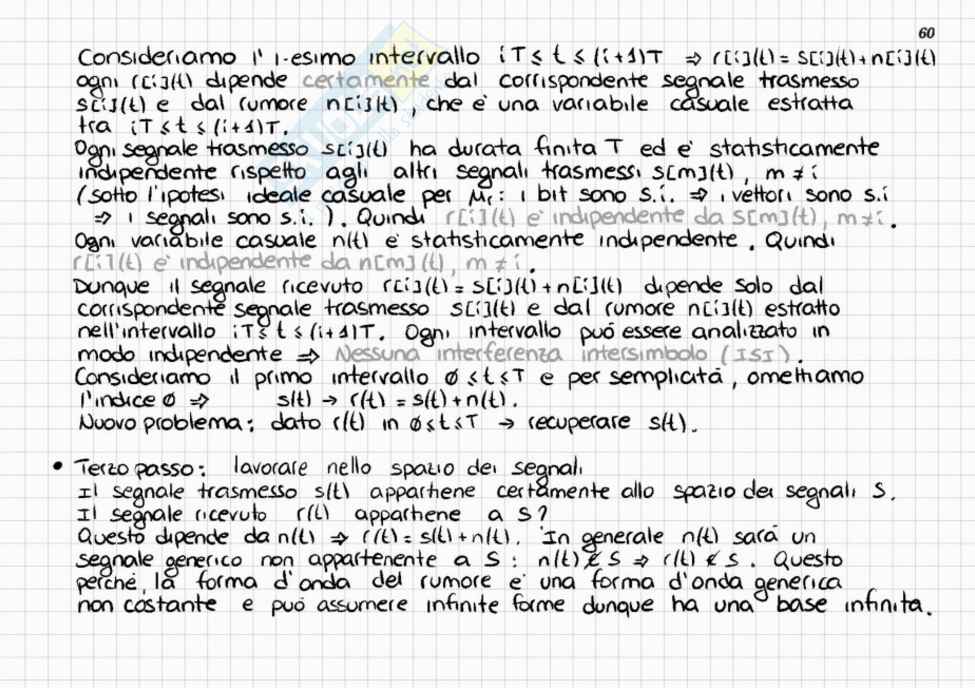 60
Consideriamo l' i-esimo intervallo iT ≤ t ≤ (i+1)T ⇒ r[i](t) = s[i](t)+n[i](t)
ogni r[i](t) dipende certamente dal corrispondente segnale trasmesso
s[i](t) e dal rumore n[i](t), che è una variabile casuale estratta
tra iT ≤ t ≤ (i+1)T.
Ogni segnale trasmesso s[i](t) ha durata finita T ed è statisticamente
indipendente rispetto agli altri segnali trasmessi s[m](t), m ≠ i
(sotto l'ipotesi ideale casuale per μr: i bit sono s.i. ⇒ i vettori sono s.i
⇒ i segnali sono s.i. ). Quindi r[i](t) è indipendente da s[m](t), m≠i.
Ogni variabile casuale n(t) è statisticamente indipendente. Quindi
r[i](t) è indipendente da n[m](t), m ≠ i.
Dunque il segnale ricevuto r[i](t) = s[i](t)+n[i](t) dipende solo dal
corrispondente segnale trasmesso s[i](t) e dal rumore n[i](t) estratto
nell'intervallo iT ≤ t ≤ (i+1)T. Ogni intervallo può essere analizzato in
modo indipendente ⇒ Nessuna interferenza intersimbolo (ISI).
Consideriamo il primo intervallo 0 ≤ t ≤ T e per semplicità, omettiamo
l'indice 0 ⇒ s(t) → r(t) = s(t)+n(t).
Nuovo problema: dato r(t) in 0≤t≤T → recuperare s(t).
• Terzo passo: lavorare nello spazio dei segnali
Il segnale trasmesso s(t) appartiene certamente allo spazio dei segnali S.
Il segnale ricevuto r(t) appartiene a S?
Questo dipende da n(t) ⇒ r(t) = s(t)+n(t). In generale n(t) sarà un
segnale generico non appartenente a S: n(t) ∉ S ⇒ r(t) ∉ S. Questo
perché, la forma d'onda del rumore è una forma d'onda generica
non costante e può assumere infinite forme dunque ha una base infinita.